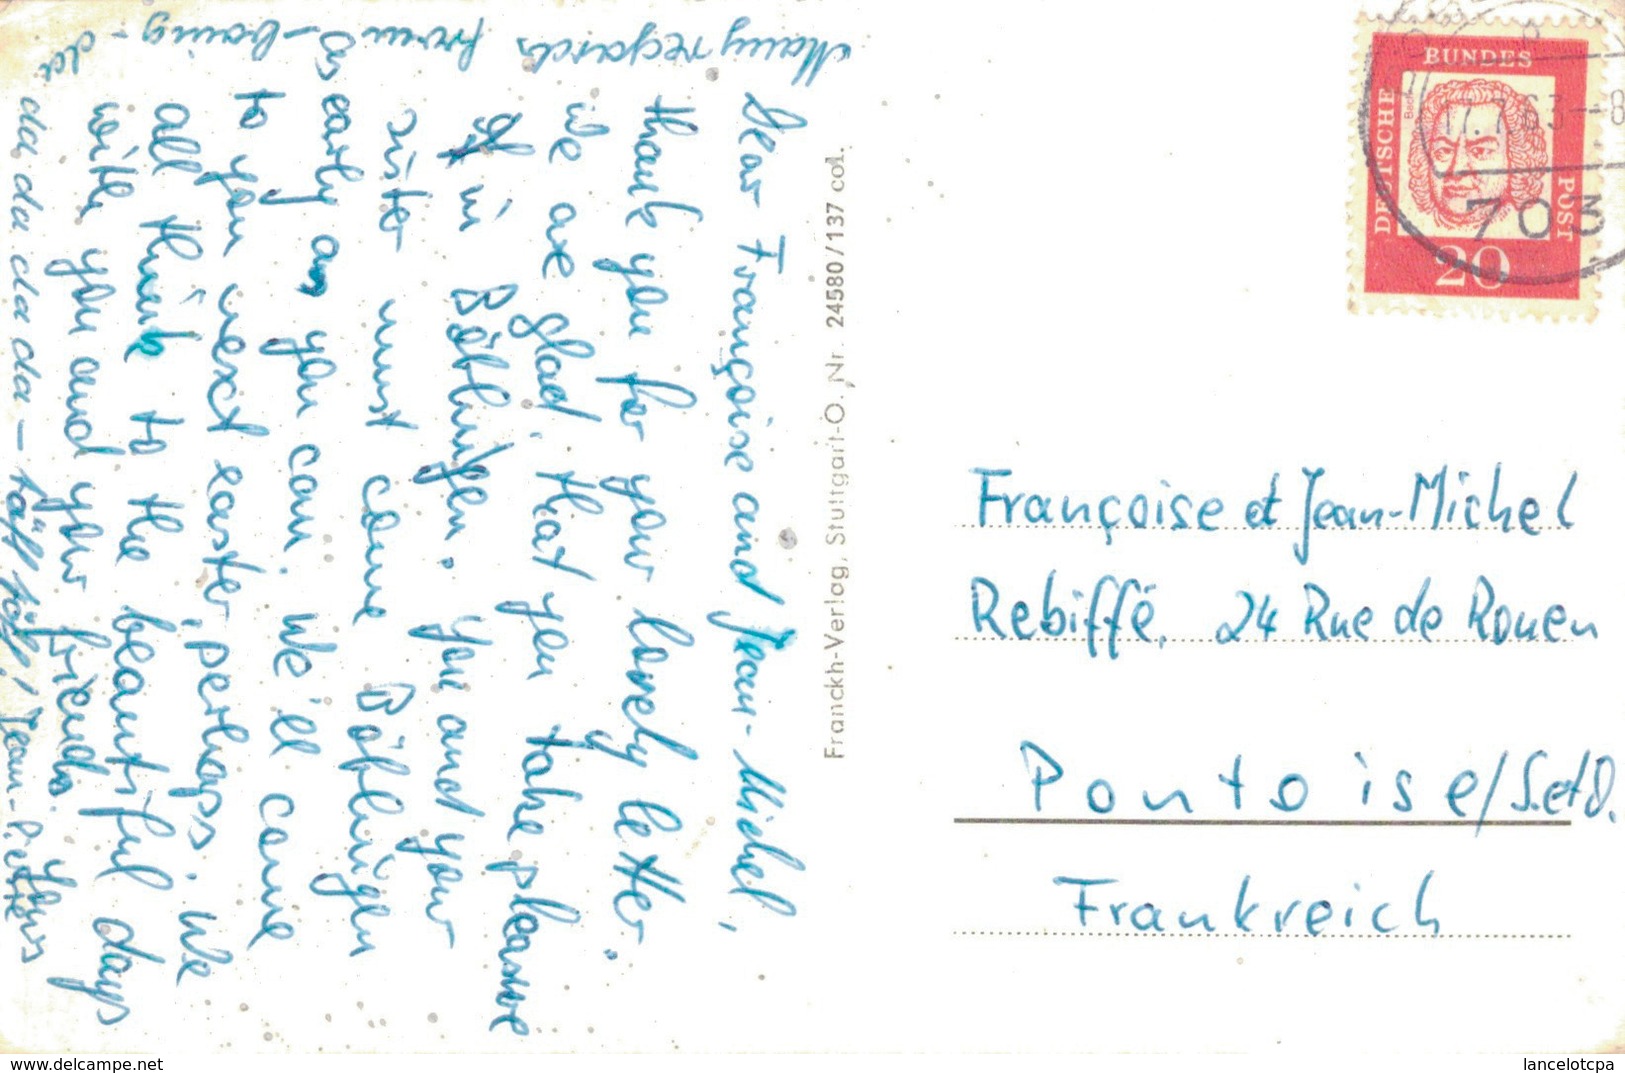 Dear Françoise and Jean-Michel,
thank you for your lovely letter.
We are glad, that you take pleasure
in Böblingen. You and your
sister must come Böblingen
as early as you can. We'll come
to you next easter, perhaps. We
all think to the beautiful days
with you and your friends. Yours
da da da da da - töff töff! Jean-Pierre
Many regards from
BUNDES
DEUTSCHE
POST
Bach
20
17.7.63-8
703
Franckh-Verlag, Stuttgart-O, Nr. 24580/137 col.
Françoise et Jean-Michel
Rebiffé, 24 Rue de Rouen
Pontoise/S.et O.
Frankreich
www.delcampe.net
lancelotcpa